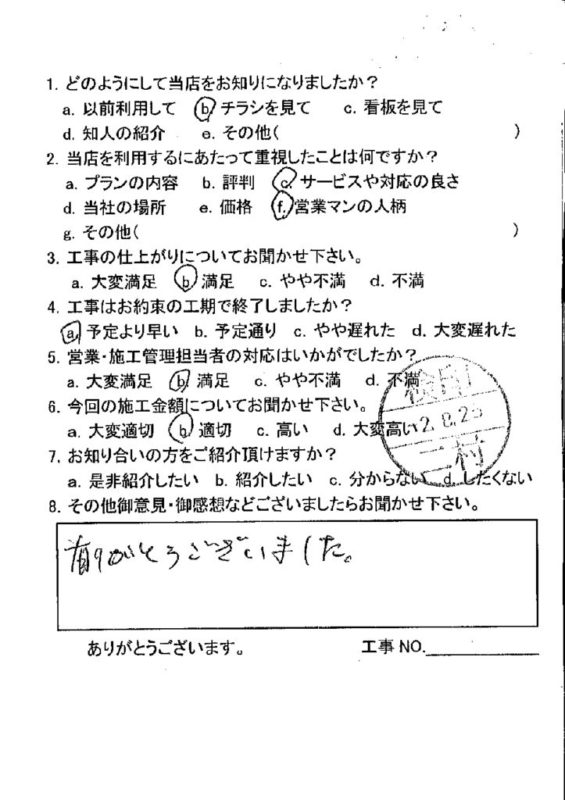 1. どのようにして当店をお知りになりましたか？
a. 以前利用して b. チラシを見て c. 看板を見て
d. 知人の紹介 e. その他( )
2. 当店を利用するにあたって重視したことは何ですか？
a. プランの内容 b. 評判 c. サービスや対応の良さ
d. 当社の場所 e. 価格 f. 営業マンの人柄
g. その他( )
3. 工事の仕上がりについてお聞かせ下さい。
a. 大変満足 b. 満足 c. やや不満 d. 不満
4. 工事はお約束の工期で終了しましたか？
a. 予定より早い b. 予定通り c. やや遅れた d. 大変遅れた
5. 営業・施工管理担当者の対応はいかがでしたか？
a. 大変満足 b. 満足 c. やや不満 d. 不満
検印
6. 今回の施工金額についてお聞かせ下さい。
a. 大変適切 b. 適切 c. 高い d. 大変高い
12.8.25
7. お知り合いの方をご紹介頂けますか？
二村
a. 是非紹介したい b. 紹介したい c. 分からない d. したくない
8. その他御意見・御感想などございましたらお聞かせ下さい。
有りがとうございました。
ありがとうございます。 工事 NO.